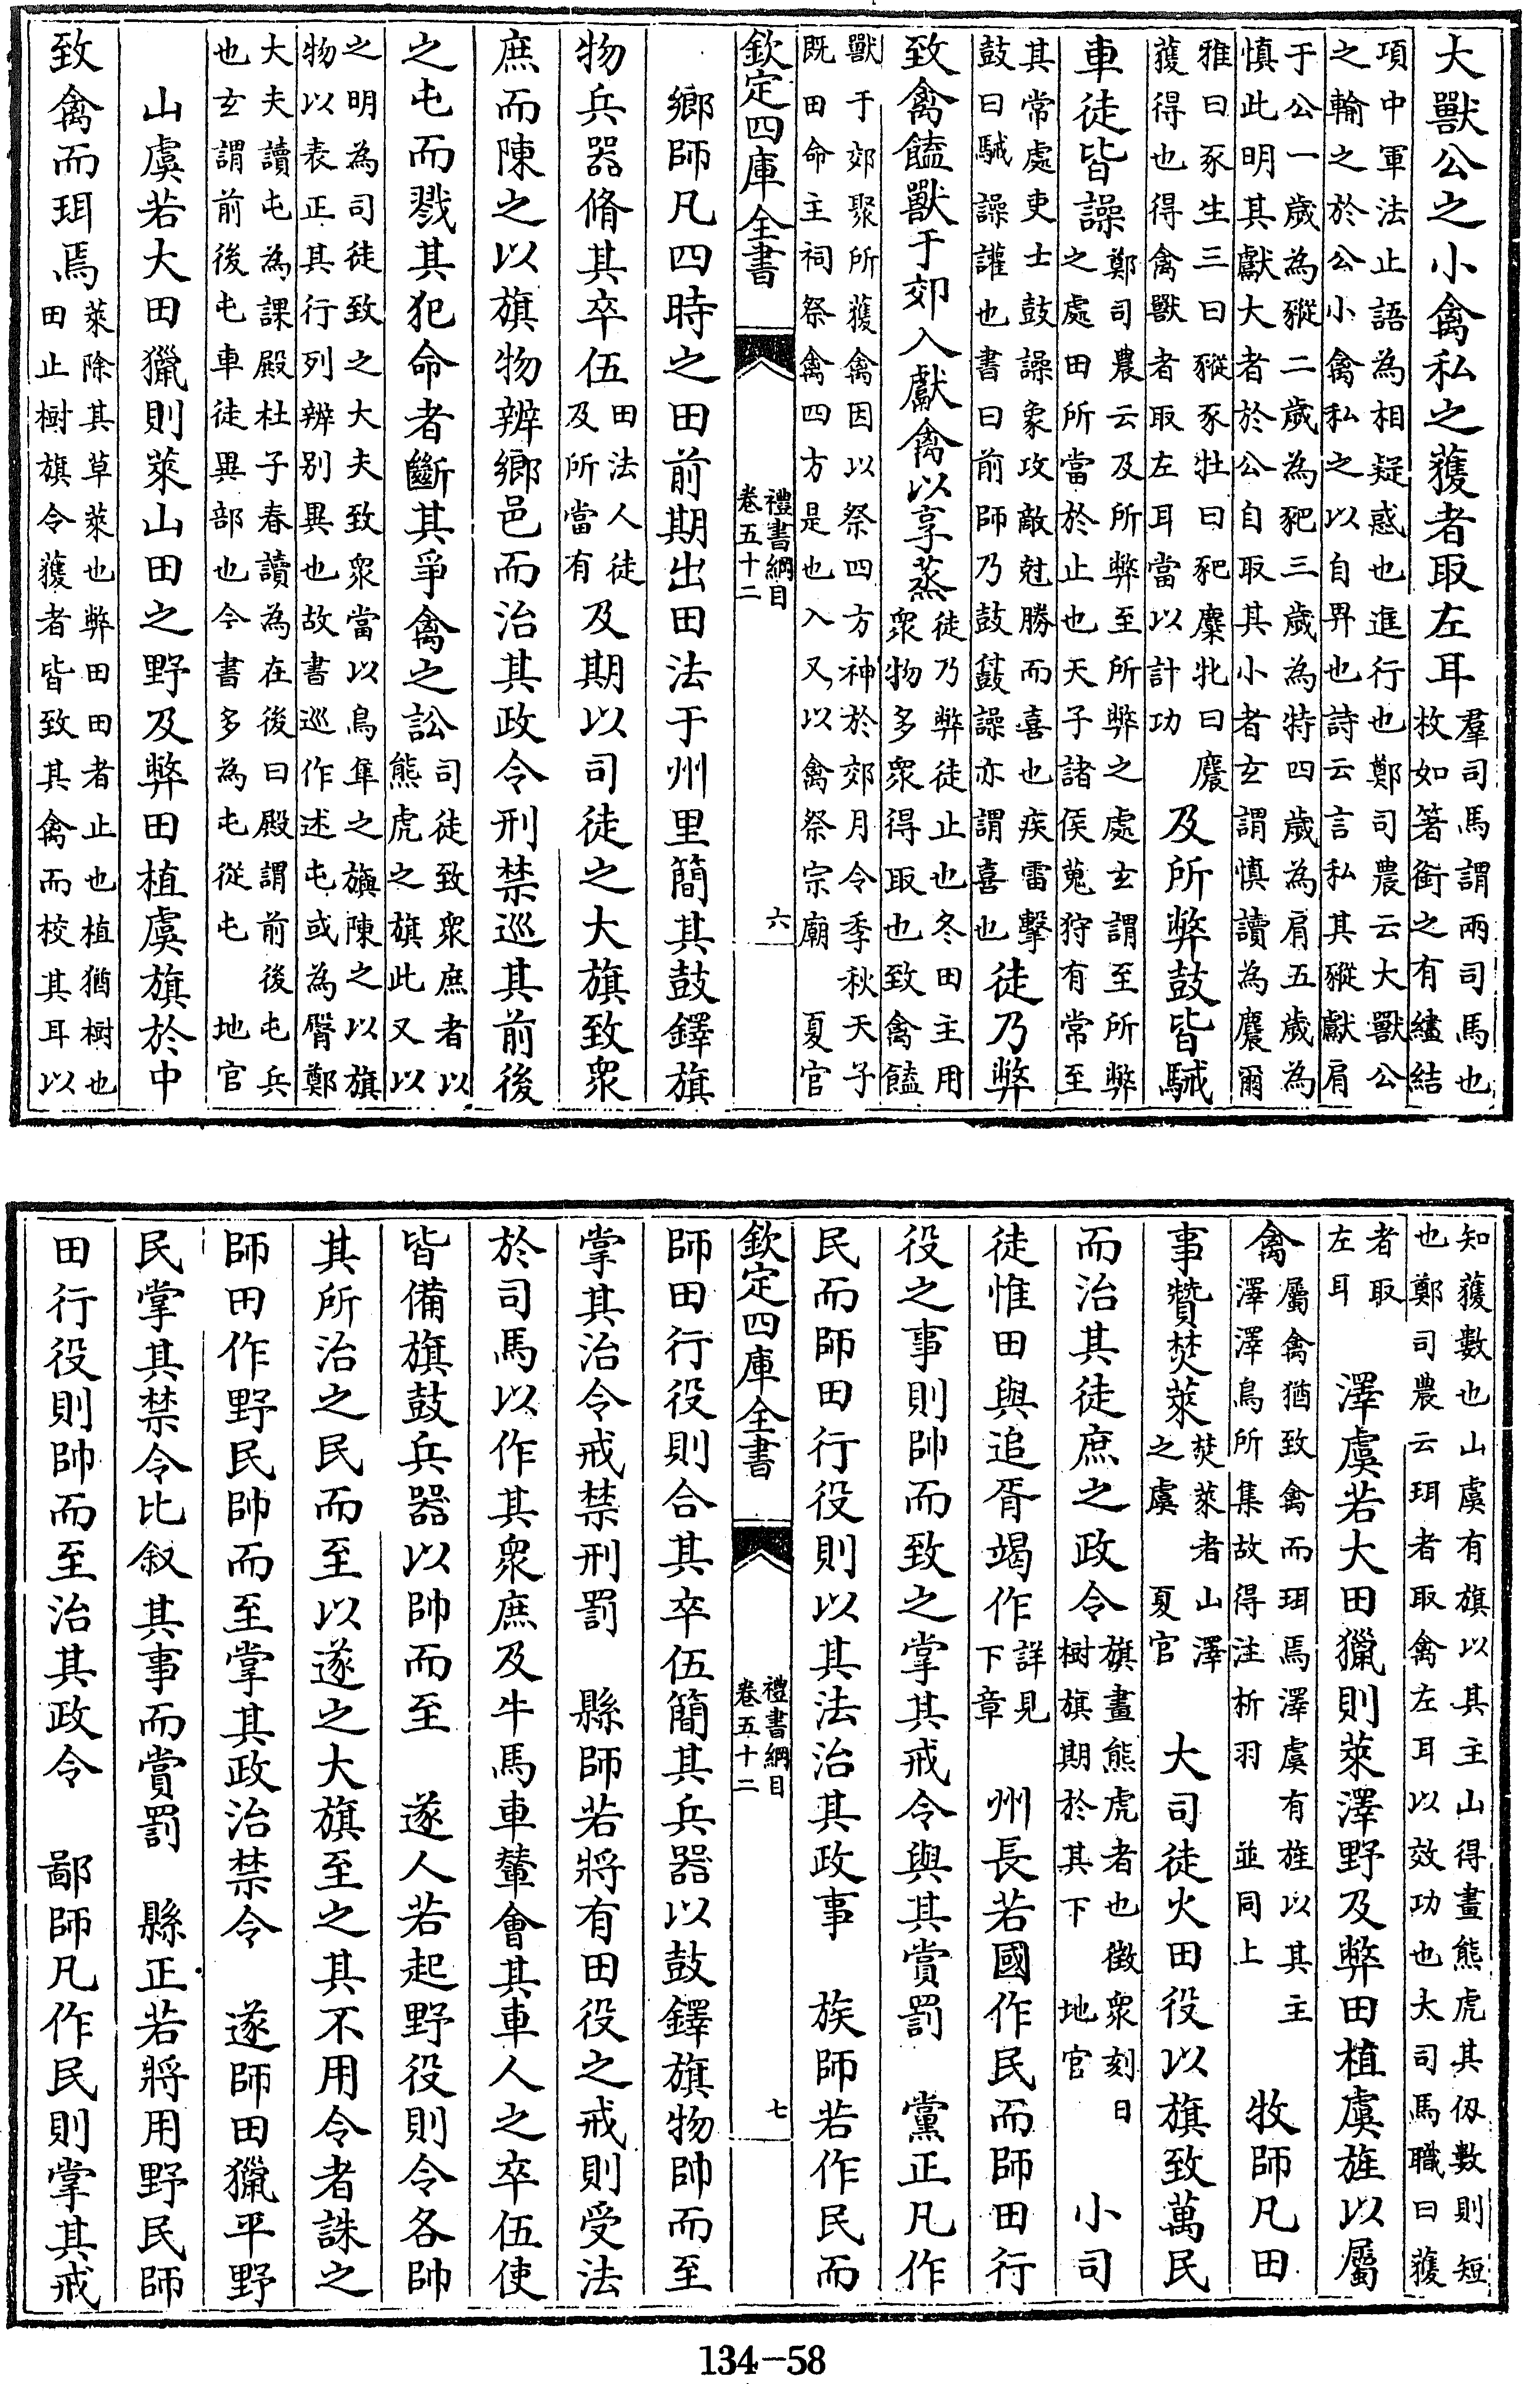 大獸公之小禽私之獲者取左耳羣司馬謂兩司馬也枚如箸銜之有繣結
項中軍法止語為相疑惑也進行也鄭司農云大獸公
之輸之於公小禽私之以自畀也詩云言私其豵獻肩
于公一歲為豵二歲為豝三歲為特四歲為肩五歲為
慎此明其獻大者於公自取其小者玄謂慎讀為麎爾
雅曰豕生三曰豵豕牡曰豝麋牝曰麎獲得也得禽獸者取左耳當以計功及所弊鼓皆駴
車徒皆譟鄭司農云及所弊至所弊之處玄謂至所弊之處田所當於止也天子諸侯蒐狩有常至
其常處吏士鼓譟象攻敵尅勝而喜也疾雷擊鼓曰駴譟讙也書曰前師乃鼓鼖譟亦謂喜也徒乃弊
致禽饁獸于郊入獻禽以享蒸徒乃弊徒止也冬田主用衆物多衆得取也致禽饁
獸于郊聚所獲禽因以祭四方神於郊月令季秋天子
既田命主祠祭禽四方是也入又以禽祭宗廟 夏官
欽定四庫全書 禮書綱目卷五十二 六
鄉師凡四時之田前期出田法于州里簡其鼓鐸旗
物兵器脩其卒伍田法人徒及所當有及期以司徒之大旗致衆
庶而陳之以旗物辨鄉邑而治其政令刑禁巡其前後
之屯而戮其犯命者斷其爭禽之訟司徒致衆庶者以熊虎之旗此又以
之明為司徒致之大夫致衆當以鳥隼之旟陳之以旗
物以表正其行列辨別異也故書巡作述屯或為臀鄭
大夫讀屯為課殿杜子春讀為在後曰殿謂前後屯兵
也玄謂前後屯車徒異部也今書多為屯從屯 地官
山虞若大田獵則萊山田之野及弊田植虞旗於中
致禽而珥焉萊除其草萊也弊田田者止也植猶樹也田止樹旗令獲者皆致其禽而校其耳以
知獲數也山虞有旗以其主山得畫熊虎其仭數則短
也鄭司農云珥者取禽左耳以效功也大司馬職曰獲
者取左耳 澤虞若大田獵則萊澤野及弊田植虞旌以屬
禽屬禽猶致禽而珥焉澤虞有旌以其主澤澤鳥所集故得注析羽 並同上 牧師凡田
事贊焚萊焚萊者山澤之虞 夏官 大司徒火田役以旗致萬民
而治其徒庶之政令旗畫熊虎者也徵衆刻日樹旗期於其下 地官 小司
徒惟田與追胥竭作詳見下章 州長若國作民而師田行
役之事則帥而致之掌其戒令與其賞罰 黨正凡作
民而師田行役則以其法治其政事 族師若作民而
欽定四庫全書 禮書綱目卷五十二 七
師田行役則合其卒伍簡其兵器以鼓鐸旗物帥而至
掌其治令戒禁刑罰 縣師若將有田役之戒則受法
於司馬以作其衆庶及牛馬車輦會其車人之卒伍使
皆備旗鼓兵器以帥而至 遂人若起野役則令各帥
其所治之民而至以遂之大旗至之其不用令者誅之
師田作野民帥而至掌其政治禁令 遂師田獵平野
民掌其禁令比叙其事而賞罰 縣正若將用野民師
田行役則帥而至治其政令 鄙師凡作民則掌其戒
134-58